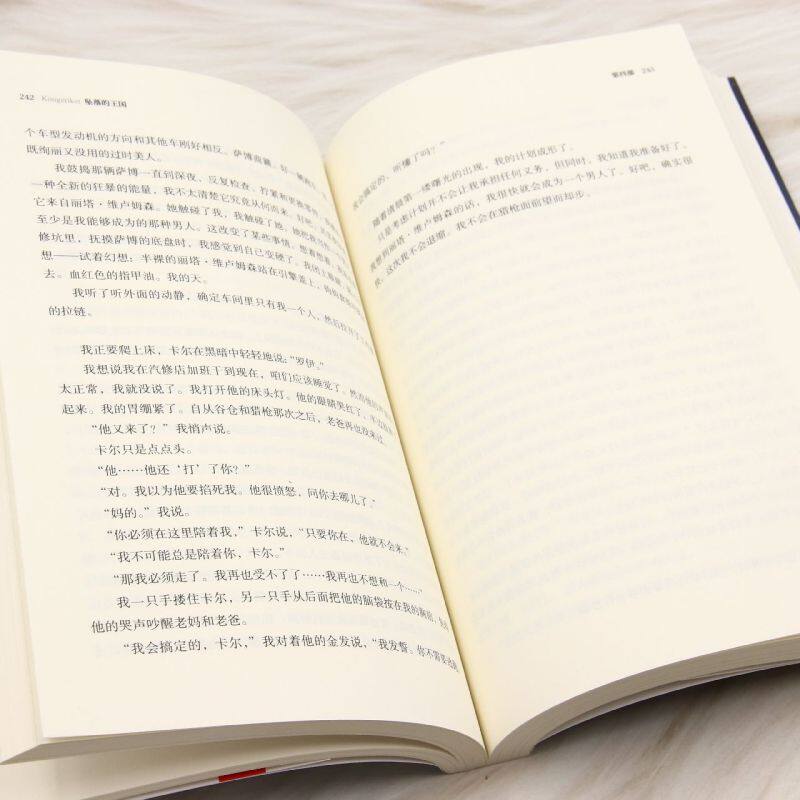 242 Kongeriket 坠落的王国
个车型发动机的方向和其他车刚好相反。萨博
既绚丽又没用的过时美人。
我鼓捣那辆萨博一直到深夜,反复检查、拧紧和更换零件
一种全新的狂暴的能量,我不太清楚它究竟从何而来。好吧,
它来自丽塔·维卢姆森。她触碰了我,我触碰了她。
至少是我能够成为的那种男人。这改变了某些事情。
修坑里,抚摸萨博的底盘时,我感觉到自己变硬了。我闭上眼睛,
想——试着幻想:半裸的丽塔·维卢姆森站在引擎盖上,
去。血红色的指甲油。我的天。
我听了听外面的动静,确定车间里只有我一个人,然后拉开了
的拉链。
我正要爬上床,卡尔在黑暗中轻轻地说:“罗伊。”
我想说我在汽修店加班干到现在,咱们应该睡觉了。然而他的声
太正常,我就没说了。我打开他的床头灯。他的眼睛哭红了,
起来。我的胃绷紧了。自从谷仓和猎枪那次之后,老爸再也没来过。
“他又来了?”我悄声说。
卡尔只是点点头。
“他……他还‘打’了你?”
“对。我以为他要掐死我。他很愤怒,问你去哪儿了。”
“妈的。”我说。
“你必须在这里陪着我,”卡尔说,“只要你在,他就不会来。”
“我不可能总是陪着你,卡尔。”
“那我必须走了。我再也受不了了……我再也不想和一个……”
我一只手搂住卡尔,另一只手从后面把他的脑袋按在我的胸前,
他的哭声吵醒老妈和老爸。
“我会搞定的,卡尔,”我对着他的金发说,“我发誓。你不需要逃
第四部 243
会搞定的,听懂了吗?”
随着清晨第一缕曙光的出现,我的计划成形了。
只是考虑计划并不会让我承担任何义务,但同时,我知道我准备好了。
我想到丽塔·维卢姆森的话,我很快就会成为一个男人了。好吧,确实很
快。这次我不会退缩。我不会在猎枪面前望而却步。